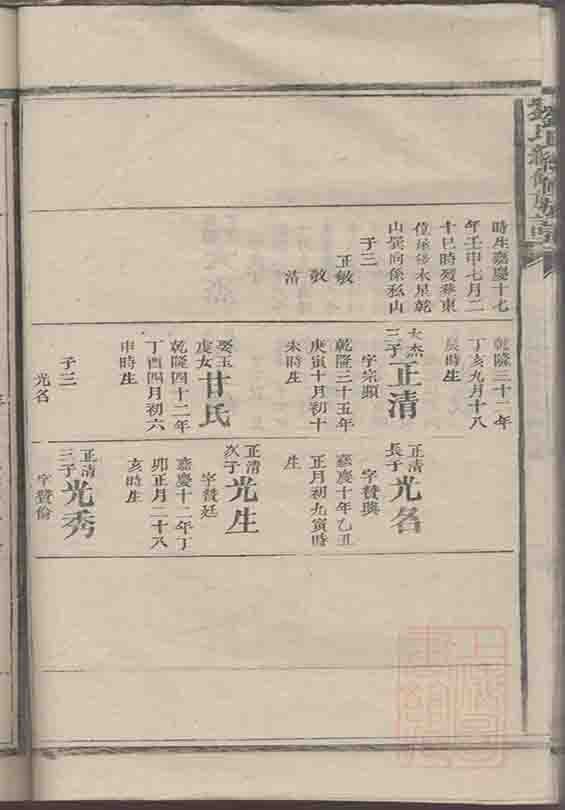 時生嘉慶十七
年壬申七月二
十巳時歿葬東
位
乾
山巽向係私山
子三
正敏
敏
清
乾隆三十二年
丁亥九月十八
辰時生
大杰
三子
正清
字宗顯
乾隆三十五年
庚寅十月初十
未時生
娶玉
虔女
甘氏
乾隆四十二年
丁酉四月初六
申時生
子三
光名
正清
長子
光名
字贊璵
嘉慶十年乙丑
正月初九寅時
生
正清
次子
光生
字贊廷
嘉慶十二年丁
卯正月二十八
亥時生
正清
三子
光秀
字贊倫